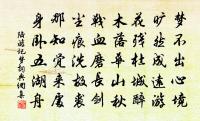 梦不出心境
旷然成远游
花在杜城醉
木落华山秋
战血磨长剑
尘痕洗故裘
那知觉来处
身卧五湖舟
陆游记梦